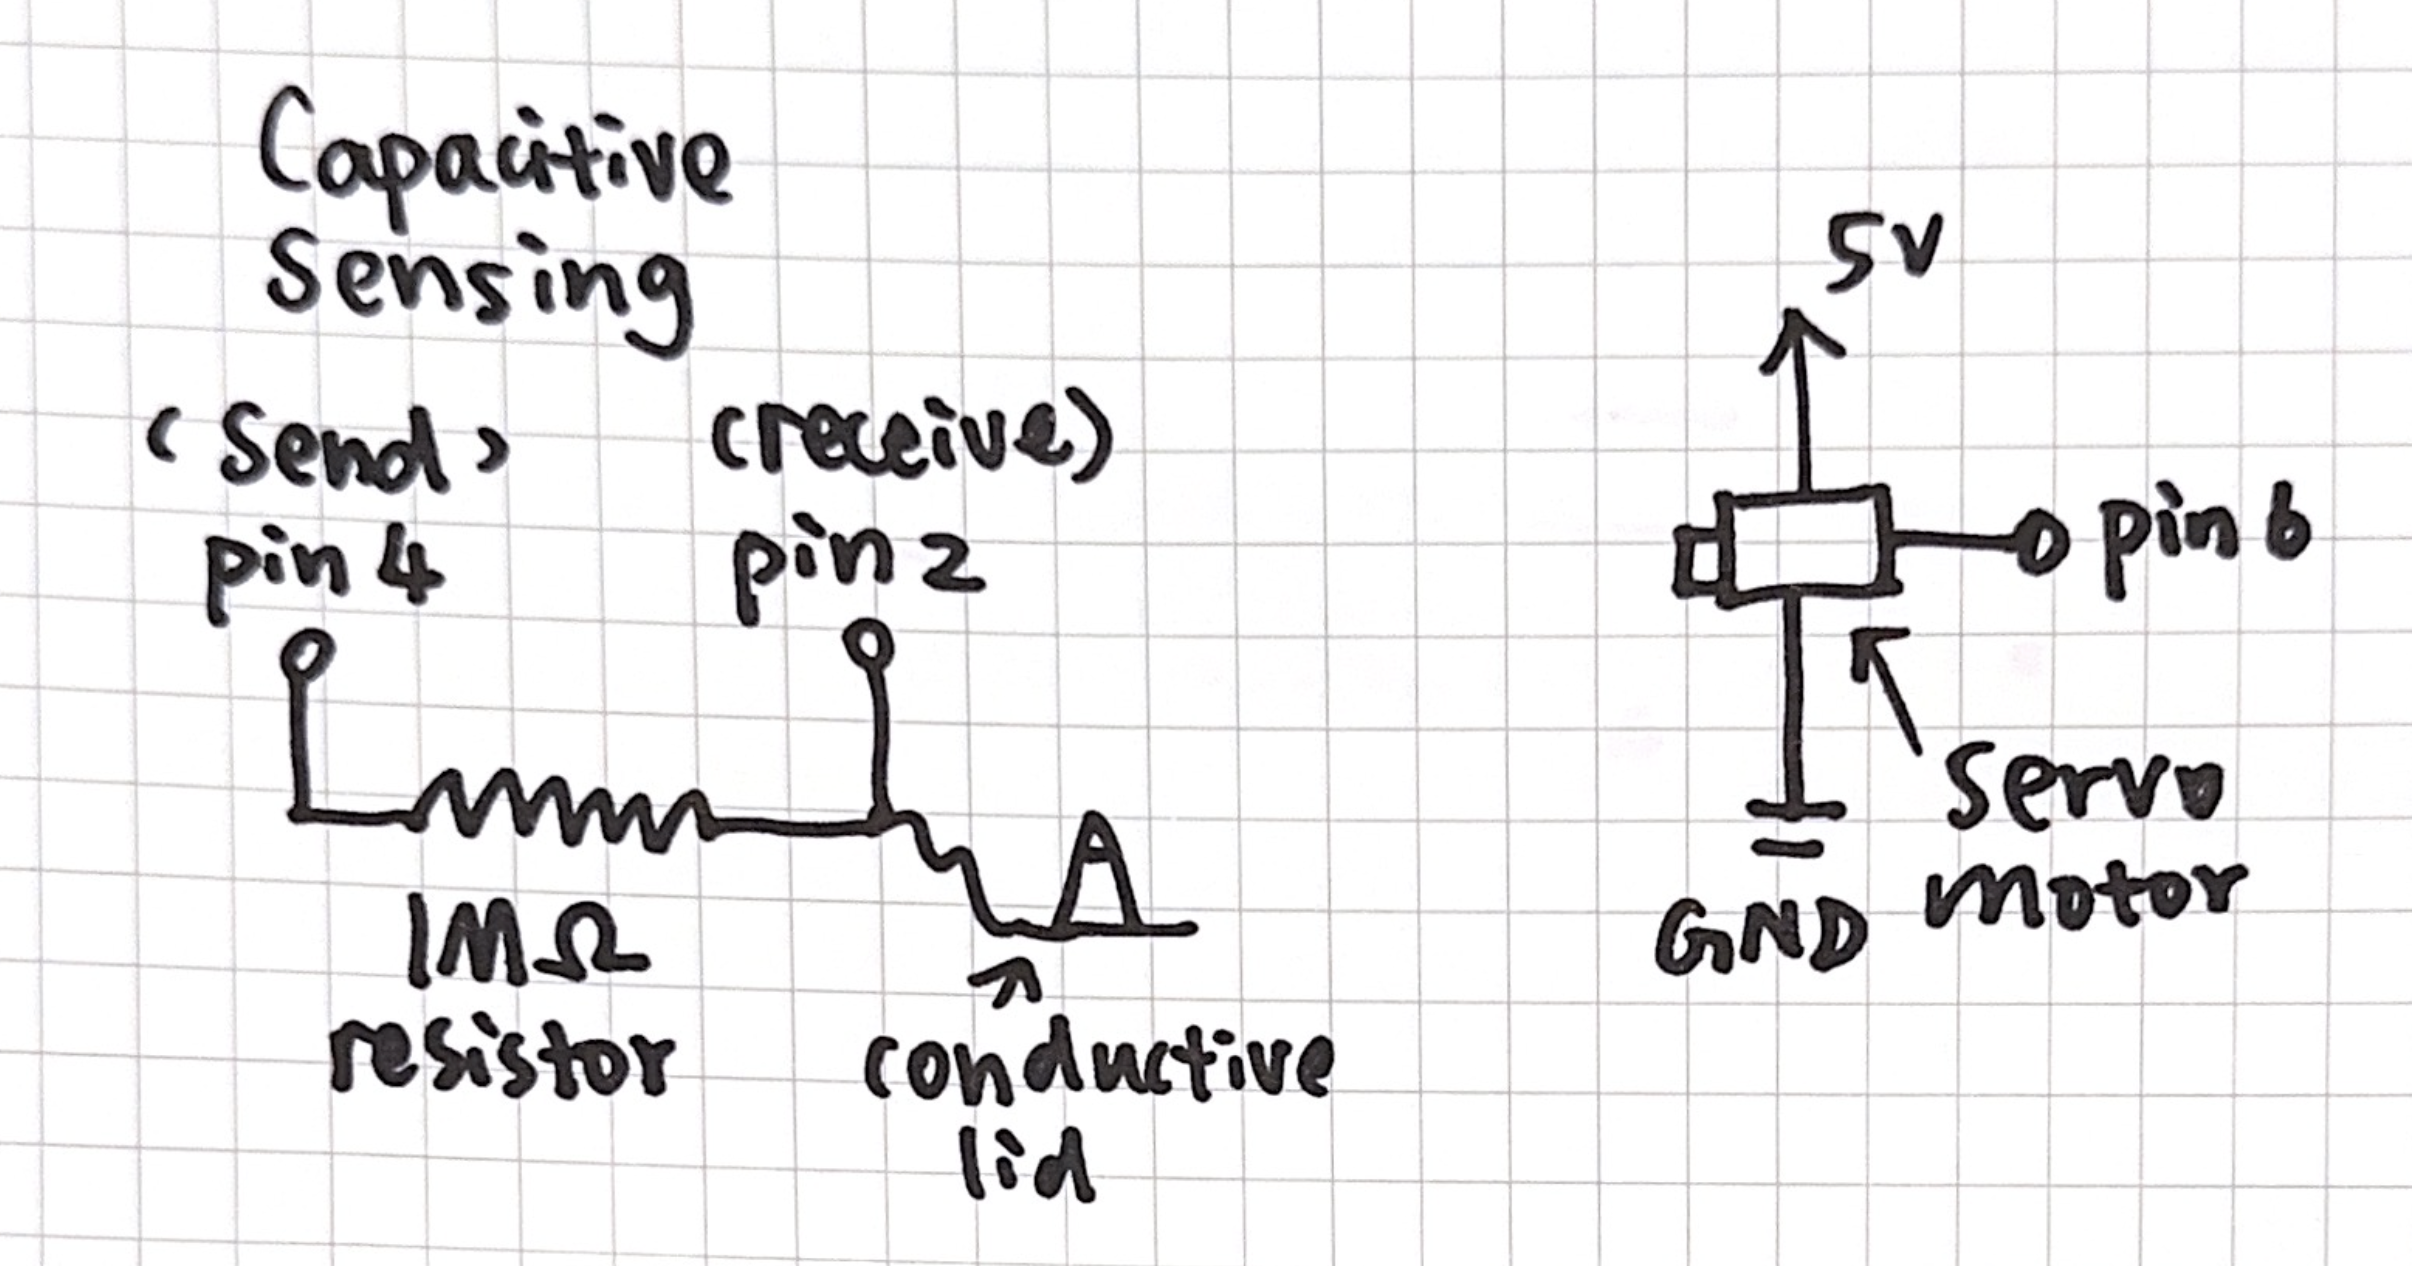 Capacitive
Sensing
(send)
pin 4
(receive)
pin 2
1MΩ
resistor
conductive
lid
5V
pin 6
servo
motor
GND